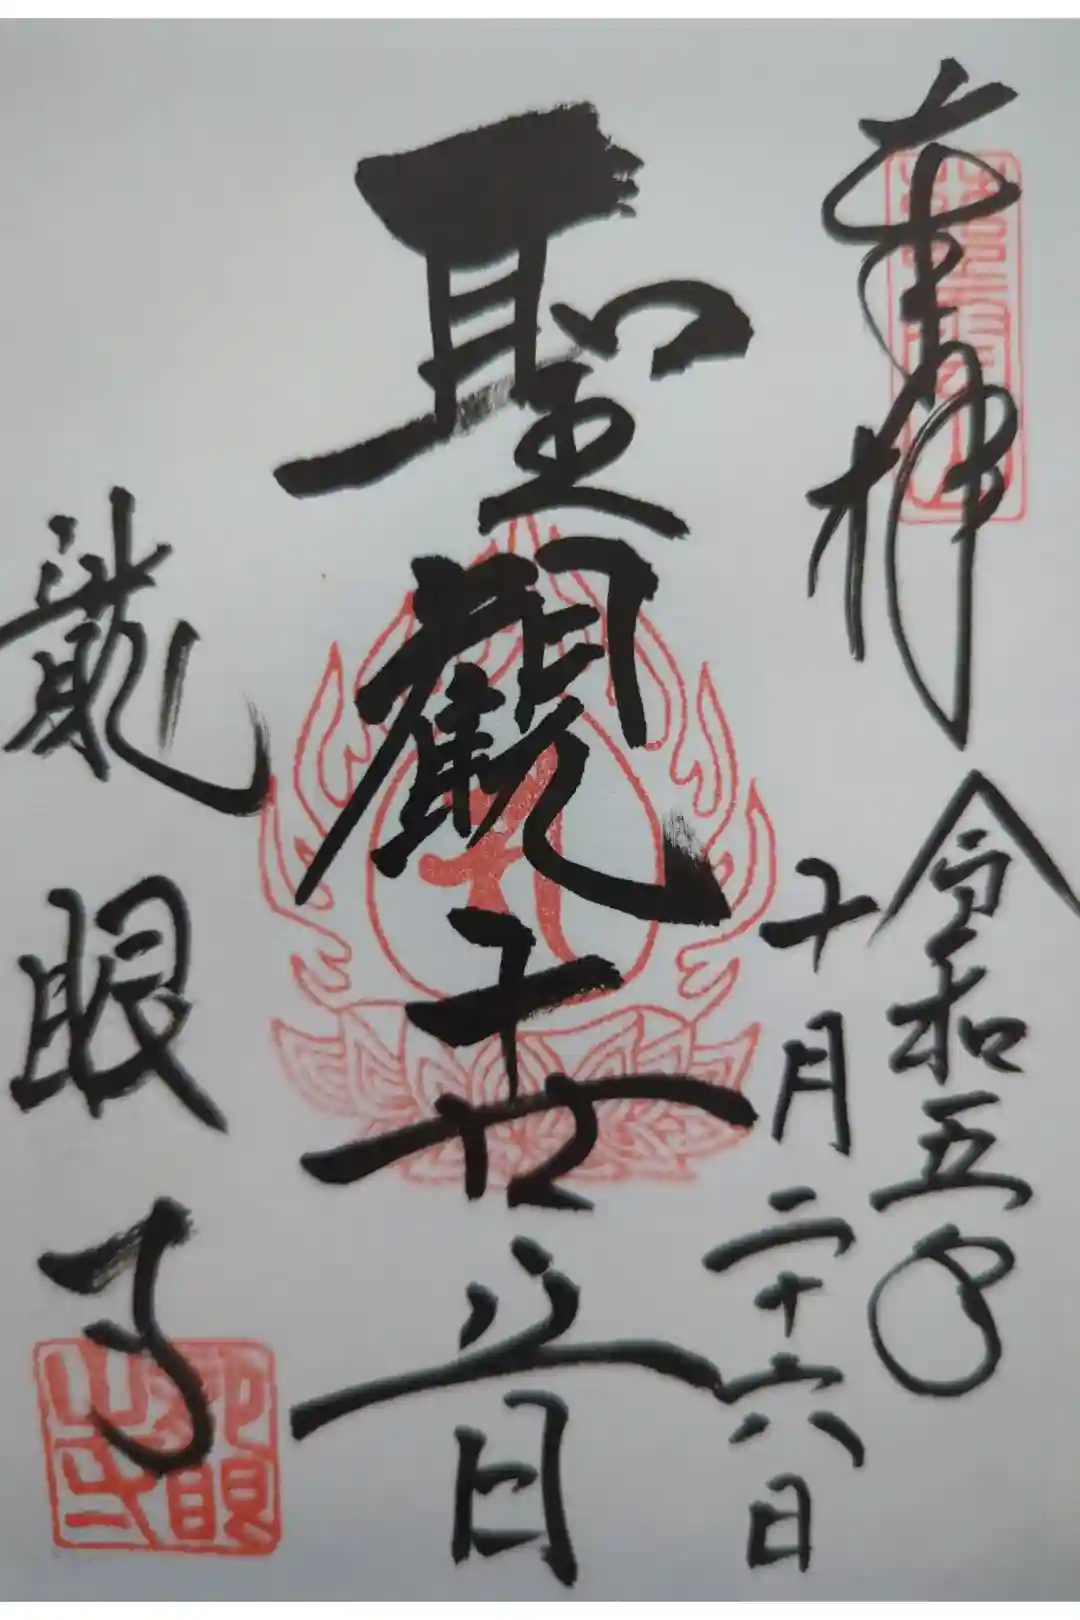 奉拝
令和五年
十月二十六日
聖観世音
龍眼寺